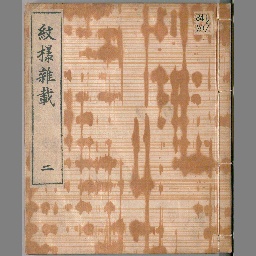 紋様雜載
二